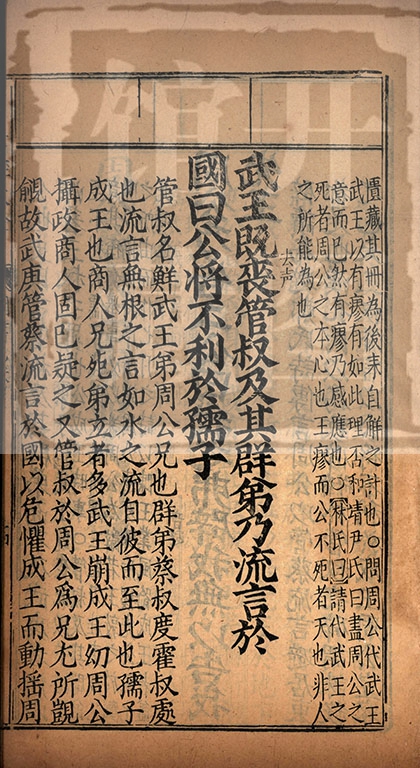 匱藏其冊為後来自解之計也○問周公代武王
武王以有瘳有如此理否和靖尹氏曰盡周公之
意而已然有瘳乃感應也○林氏曰請代武王之
死者周公之本心也王瘳而公不死者天也非人
之所能為也
武王既喪管叔及其群弟乃流言於
去声
國曰公將不利於孺子
管叔名鮮武王弟周公兄也群弟蔡叔度霍叔處
也流言無根之言如水之流自彼而至此也孺子
成王也商人兄死弟立者多武王崩成王幼周公
攝政商人固已疑之又管叔於周公爲兄尤所覬
覦故武庚管蔡流言於國以危懼成王而動揺周